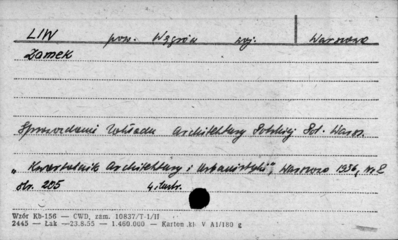 LIW pow. Węgrów woj. Warszawa
Zamek
Sprawozdania Zakładu Architektury Polskiej Pol. Warsz.
"Kwartalnik Architektury i Urbanistyki", Warszawa 1956, nr 2
str. 205 4 ilustr.
Wzór Kb-156 — CWD, zam. 10837/7-1/II
2445 — Łak —23.8.55 — 1.460.000 — Karton kl. V A1/180 g